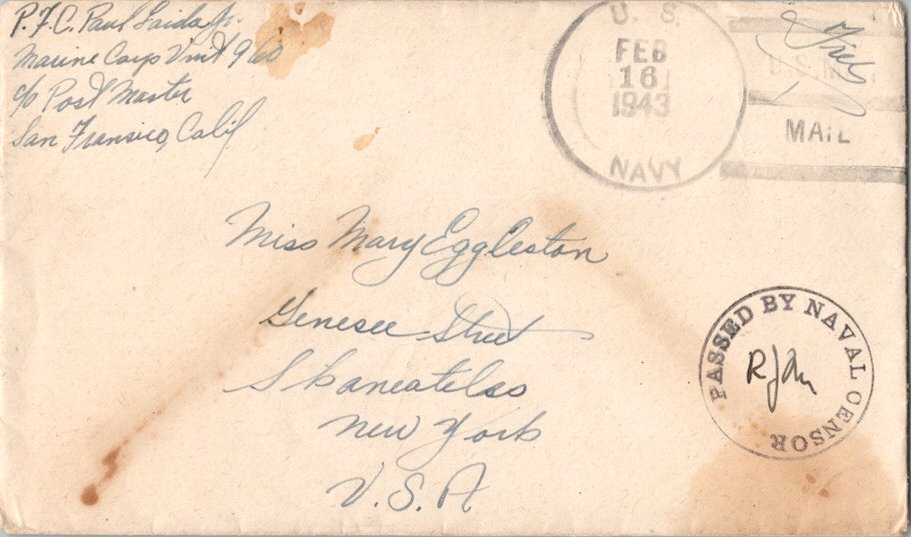 P.F.C. Paul Saida Jr.
Marine Corps Unit 960
c/o Post Master
San Fransico, Calif
U. S.
FEB
16
1943
NAVY
Free
MAIL
Miss Mary Eggleston
Genesee Street
Skaneatelas
New York
U.S.A
PASSED BY NAVAL CENSOR